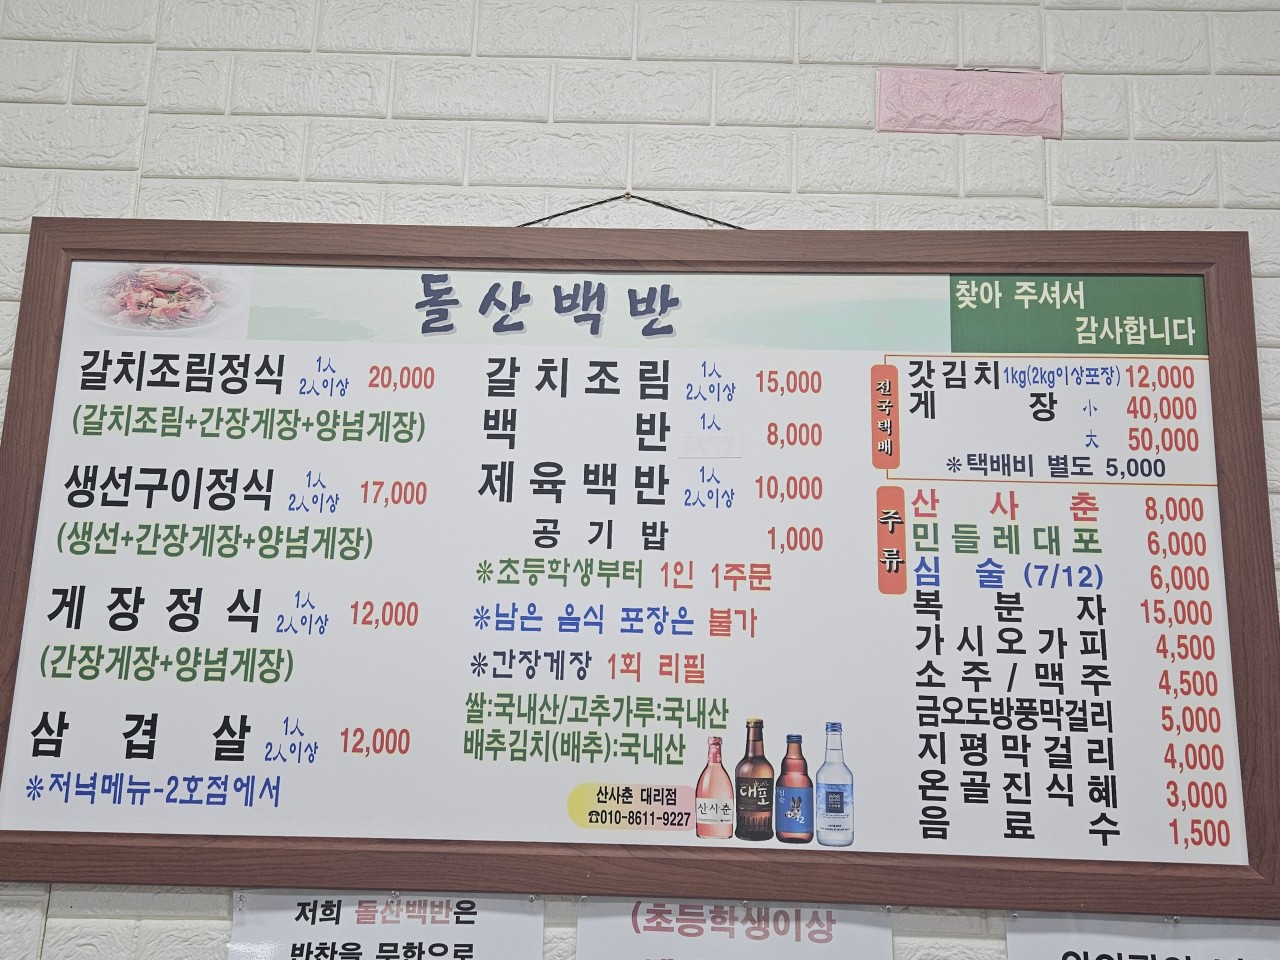 돌산백반
찾아 주셔서
감사합니다
갈치조림정식 1人 2人이상 20,000
(갈치조림+간장게장+양념게장)
생선구이정식 1人 2人이상 17,000
(생선+간장게장+양념게장)
게장정식 1人 2人이상 12,000
(간장게장+양념게장)
삼겹살 1人 2人이상 12,000
※저녁메뉴-2호점에서
갈치조림 1人 2人이상 15,000
백반 1人 8,000
제육백반 1人 2人이상 10,000
공기밥 1,000
※초등학생부터 1인 1주문
※남은 음식 포장은 불가
※간장게장 1회 리필
쌀:국내산/고추가루:국내산
배추김치(배추):국내산
산사춘 대리점
☎010-8611-9227
산사춘
대포
전국택배
갓김치 1kg(2kg이상포장) 12,000
게장 小 40,000
大 50,000
※택배비 별도 5,000
주류
산사춘 8,000
민들레대포 6,000
심술 (7/12) 6,000
복분자 15,000
가시오가피 4,500
소주/맥주 4,500
금오도방풍막걸리 5,000
지평막걸리 4,000
온골진식혜 3,000
음료수 1,500
저희 돌산백반은
반찬을 무한으로
(초등학생이상